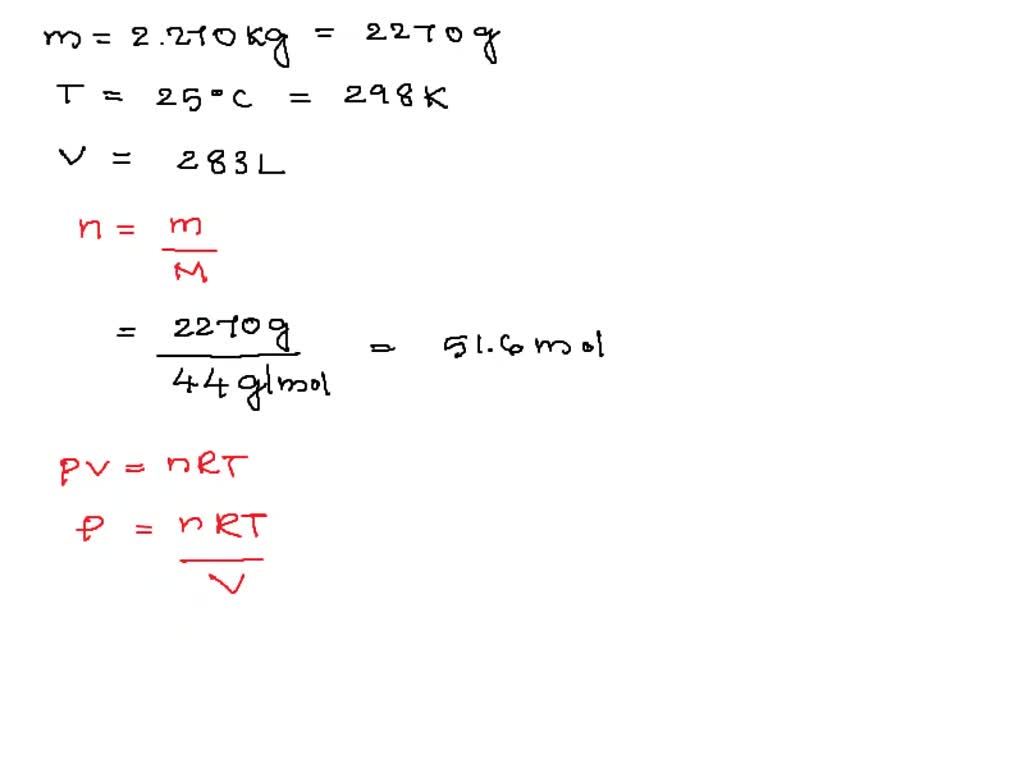 m = 2.270 kg = 2270 g
T = 25°C = 298 K
V = 283 L
n = m / M
= 2270 g / 44 g/mol = 51.6 mol
PV = nRT
P = nRT / V